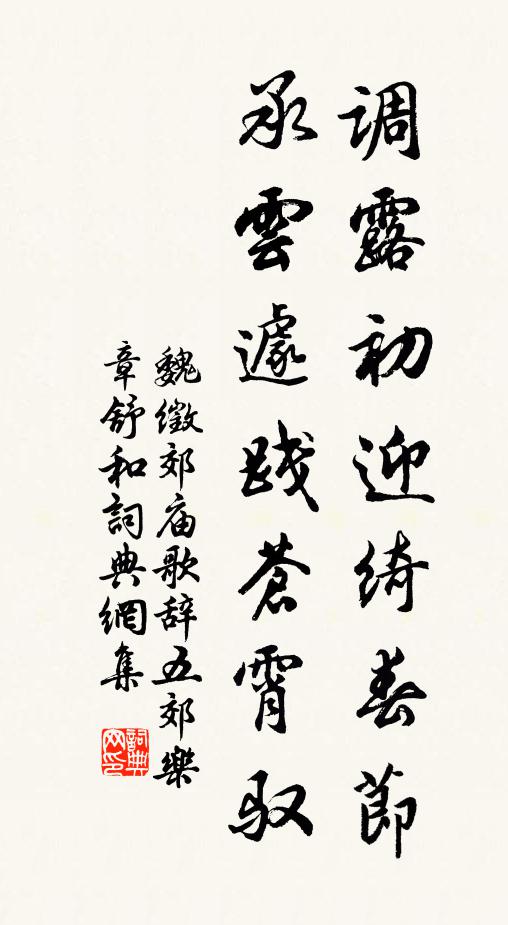 调露初迎绮春節
承雲遽踐蒼霄馭
魏徵郊庙歌辞五郊樂
章舒和詞典網集
詞典
网印